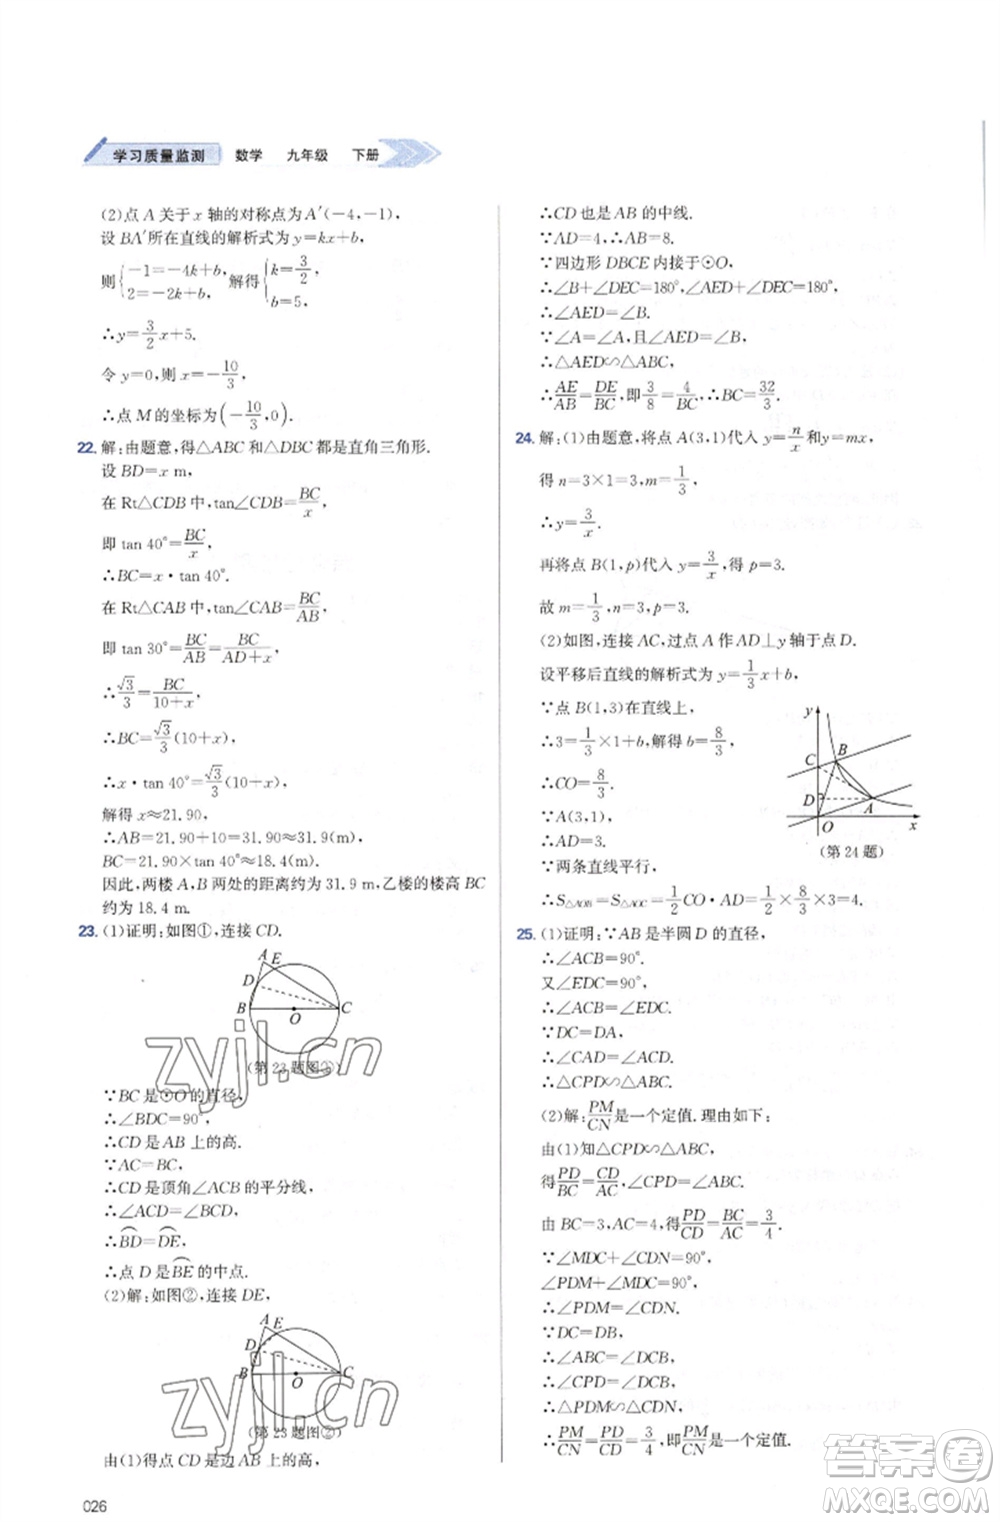 学习质量监测 数学 九年级 下册
(2)点 A 关于 x 轴的对称点为 A′(-4,-1),
设 BA′所在直线的解析式为 y=kx+b,
则{-1=-4k+b, 2=-2k+b, 解得{k=3/2, b=5.
∴y=3/2x+5.
令 y=0,则 x=-10/3,
∴点 M 的坐标为(-10/3,0).
22. 解:由题意,得△ABC 和△DBC 都是直角三角形.
设 BD=x m,
在 Rt△CDB 中,tan∠CDB=BC/x,
即 tan 40°=BC/x,
∴BC=x·tan 40°.
在 Rt△CAB 中,tan∠CAB=BC/AB,
即 tan 30°=BC/AB=BC/AD+x,
∴√3/3=BC/10+x,
∴BC=√3/3(10+x),
∴x·tan 40°=√3/3(10+x),
解得 x≈21.90,
∴AB=21.90+10=31.90≈31.9(m),
BC=21.90×tan 40°≈18.4(m).
因此,两楼 A,B 两处的距离约为 31.9 m,乙楼的楼高 BC
约为 18.4 m.
23. (1)证明:如图①,连接 CD.
A E
D
B O C
(第 23 题图①)
∵BC 是⊙O 的直径,
∴∠BDC=90°,
∴CD 是 AB 上的高.
∵AC=BC,
∴CD 是顶角∠ACB 的平分线,
∴∠ACD=∠BCD,
∴BD=DE,
∴点 D 是BE的中点.
(2)解:如图②,连接 DE,
A E
D
B O C
(第 23 题图②)
由(1)得点 CD 是边 AB 上的高,
026
∴CD 也是 AB 的中线.
∵AD=4,∴AB=8.
∵四边形 DBCE 内接于⊙O,
∴∠B+∠DEC=180°,∠AED+∠DEC=180°,
∴∠AED=∠B.
∵∠A=∠A,且∠AED=∠B,
∴△AED∽△ABC,
∴AE/AB=DE/BC,即3/8=4/BC,∴BC=32/3.
24. 解:(1)由题意,将点 A(3,1)代入 y=n/x和y=mx,
得 n=3×1=3,m=1/3,
∴y=3/x.
再将点 B(1,p)代入 y=3/x,得 p=3.
故 m=1/3,n=3,p=3.
(2)如图,连接 AC,过点 A 作 AD⊥y 轴于点 D.
设平移后直线的解析式为 y=1/3x+b,
∵点 B(1,3)在直线上,
∴3=1/3×1+b,解得 b=8/3,
∴CO=8/3.
∵A(3,1),
∴AD=3.
∵两条直线平行,
y
C B
D A
O x
(第 24 题)
∴S△AOB=S△AOC=1/2CO·AD=1/2×8/3×3=4.
25. (1)证明:∵AB 是半圆 D 的直径,
∴∠ACB=90°.
又∠EDC=90°,
∴∠ACB=∠EDC.
∵DC=DA,
∴∠CAD=∠ACD.
∴△CPD∽△ABC.
(2)解:PM/CN是一个定值.理由如下:
由(1)知△CPD∽△ABC,
得PD/BC=CD/AC,
由 BC=3,AC=4,得PD/CD=BC/AC=3/4.
∵∠MDC+∠CDN=90°,
∠PDM+∠MDC=90°,
∴∠PDM=∠CDN.
∵DC=DB,
∴∠DCB=∠B,
∴∠DCB=∠CPD,
∴△PDM∽△CDN,
∴PM/CN=PD/CD=3/4,即PM/CN是一个定值.
zyjl.cn
zyjl.cn
答案圈
MXQE.COM